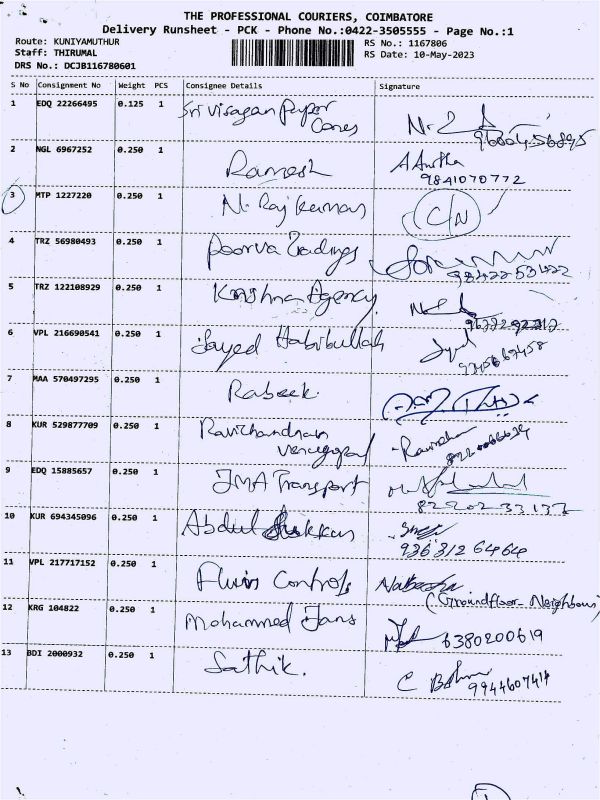 THE PROFESSIONAL COURIERS, COIMBATORE
Delivery Runsheet - PCK - Phone No.:0422-3505555 - Page No.:1
Route: KUNIYAMUTHUR
Staff: THIRUMAL
DRS No.: DCJB116780601
RS No.: 1167806
RS Date: 10-May-2023
S No Consignment No Weight PCS Consignee Details Signature
1 EDQ 22266495 0.125 1 Sri Visagan Paper
Cones
2 NGL 6967252 0.250 1 Ramesh A Anitha
9841070772
3 MTP 1227220 0.250 1 N. Raj kumar C/N
4 TRZ 56980493 0.250 1 Poorva Tradings
98422 53422
5 TRZ 122108929 0.250 1 Krishna Agency
6 VPL 216690541 0.250 1 Sayed Habibullah
7 MAA 570497295 0.250 1 Rabeek.
8 KUR 529877709 0.250 1 Ravichandran
Venugopal
9 EDQ 15885657 0.250 1 JMA Transport
82202 33132
10 KUR 694345096 0.250 1 Abdul
936 312 6464
11 VPL 217717152 0.250 1 Controls
(Groundfloor- Neighbour)
12 KRG 104822 0.250 1 Mohammed Jans 6380200619
13 BDI 2000932 0.250 1 Sathik.
9944607414